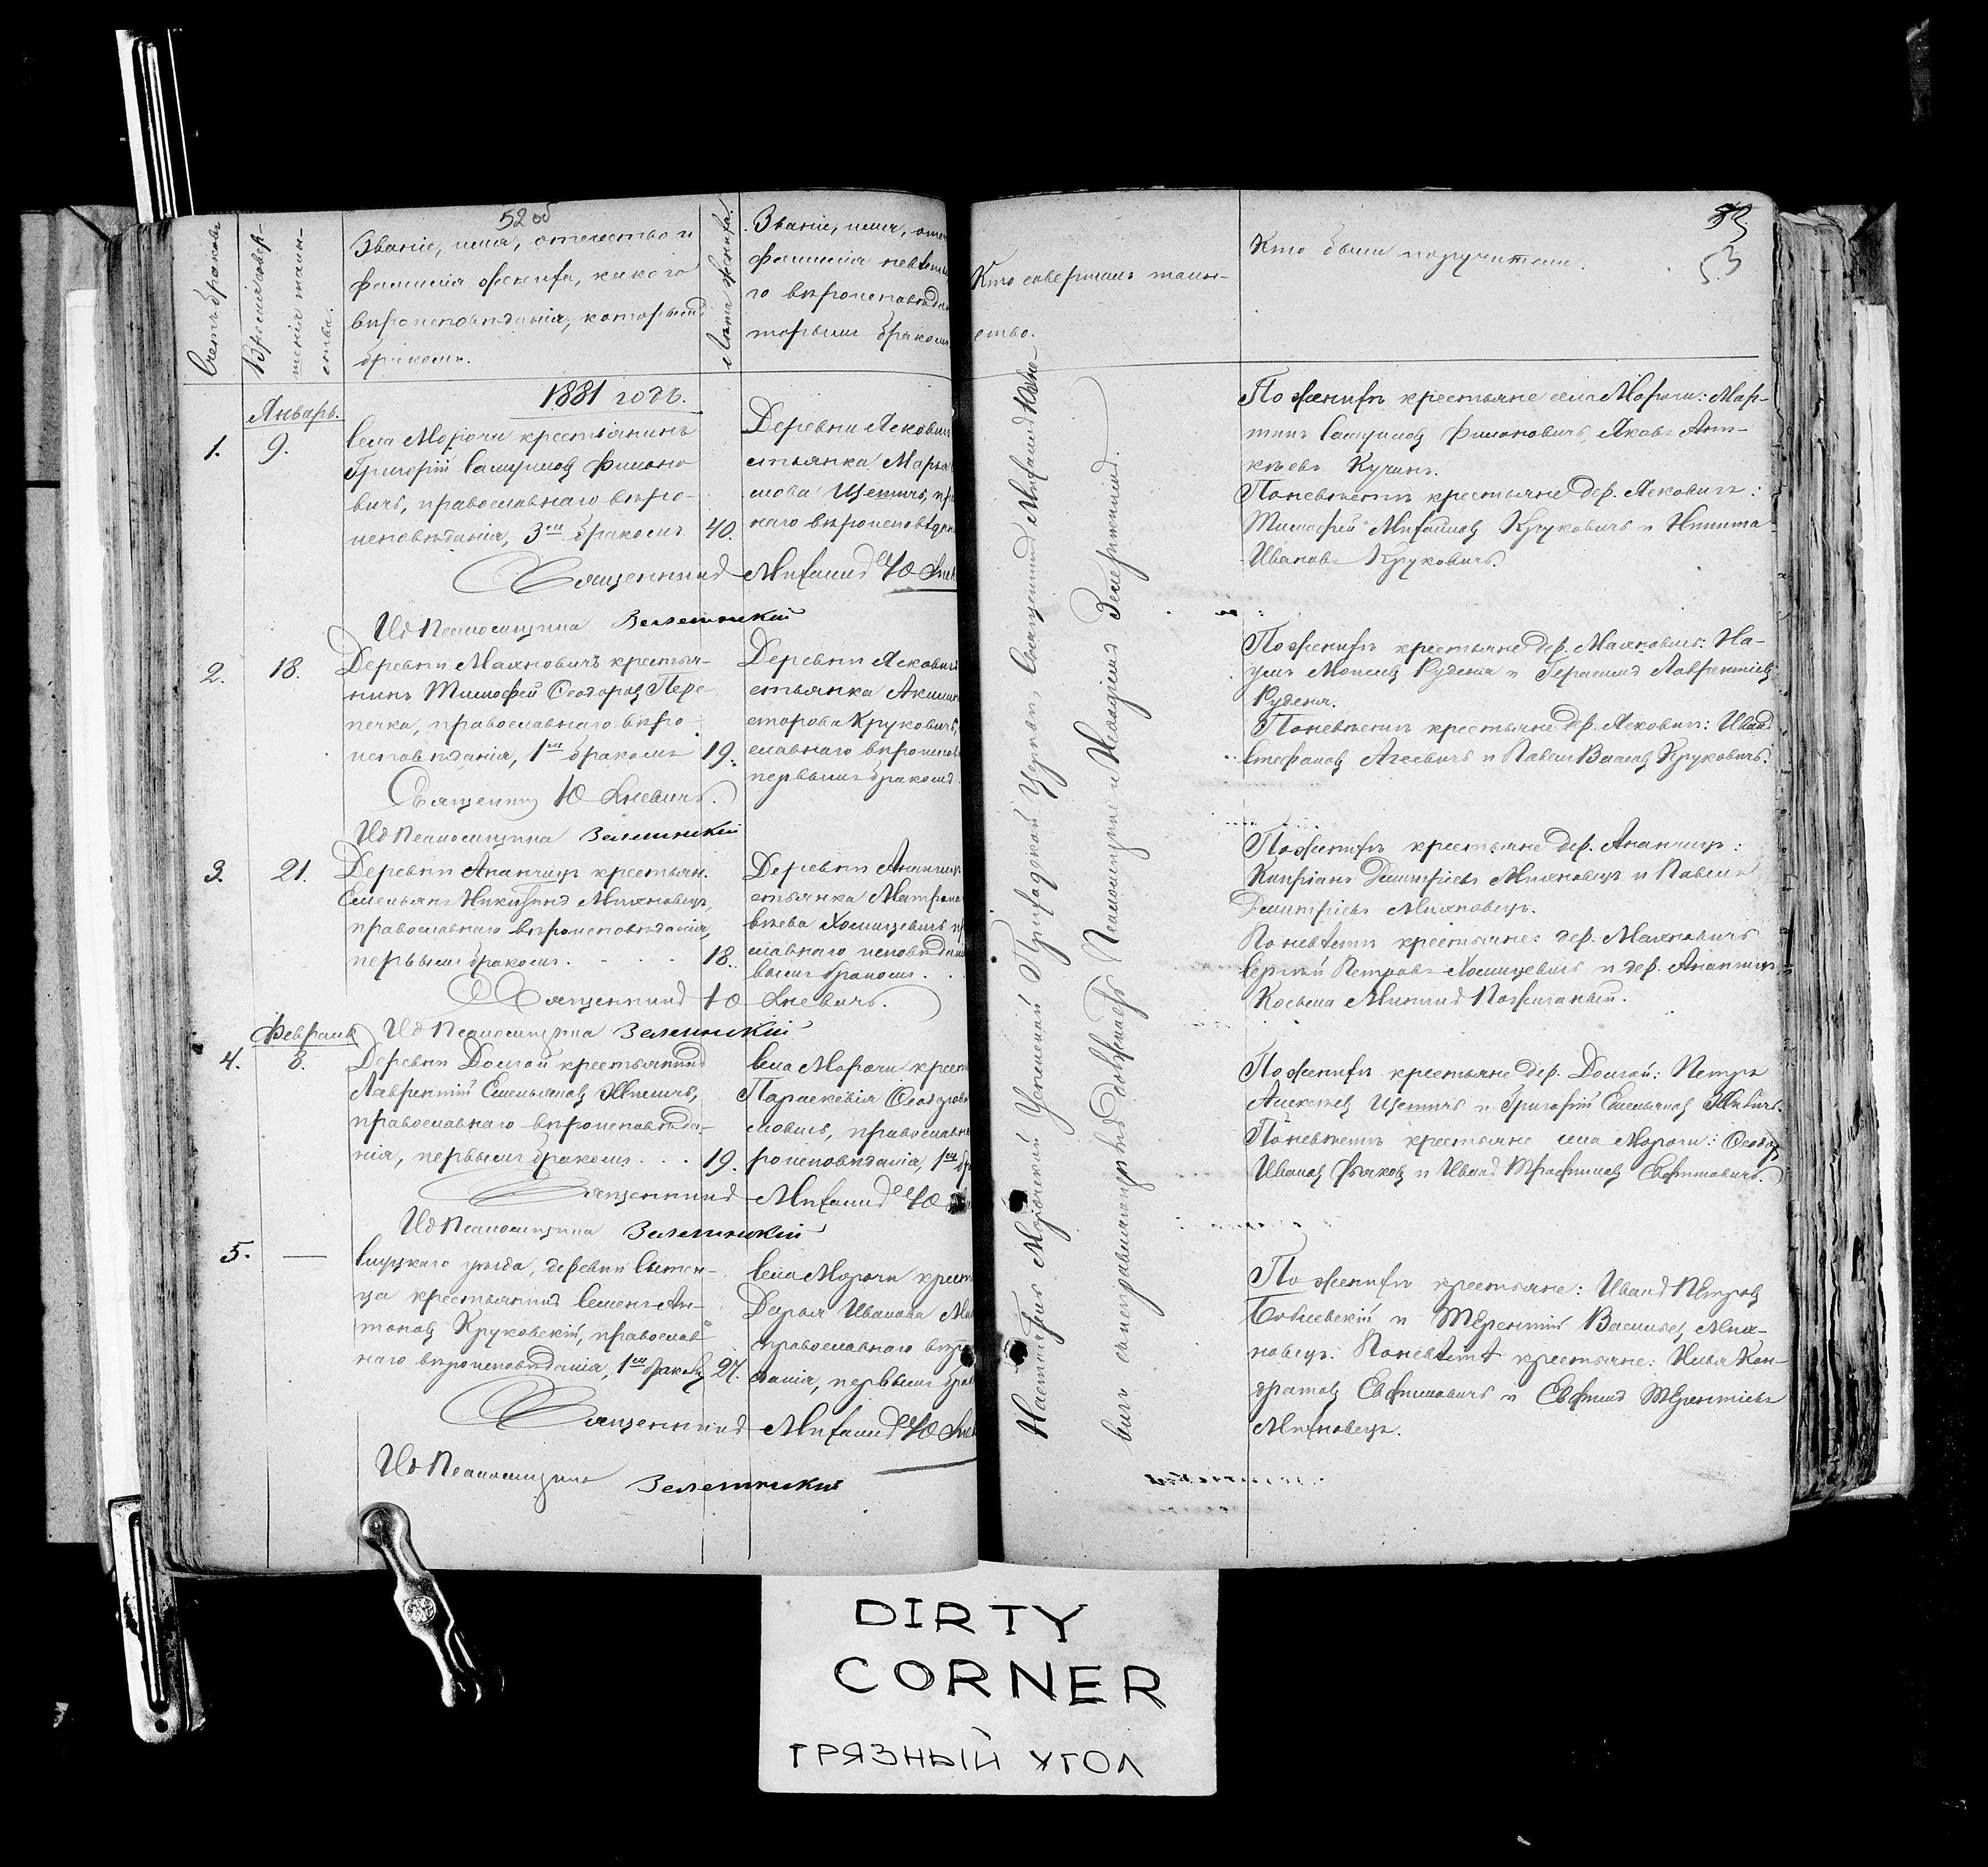 52 об
Счетъ браковъ
Время совер-
шенія таин-
ства.
Званіе, имя, отечество и
фамилія жениха, какого
вѣроисповѣданія, которымъ
бракомъ.
Лѣта жениха.
Званіе, имя,
фамилія невѣсты
го вѣроисповѣда
торымъ бракомъ
1881 годъ.
Январь.
1.
9.
Села Морочи крестьянинъ
Григорій Самуиловъ Филоно
вичъ, православнаго вѣро-
исповѣданія, 3мъ бракомъ
40.
Деревни Ясковичъ
стьянка Марья
мова Щетичъ, пр
наго вѣроисповѣдан
Священникъ Михаилъ Ю
ИдПсаломщика Зелетинскій
2.
18.
Деревни Махновичъ крестья-
нинъ Тимофей Ѳеодоровъ Пере
печка, православнаго вѣро-
исповѣданія, 1мъ бракомъ
19.
Деревни Ясковичъ
стьянка Акилин
сторова Круковичъ,
славнаго вѣроиспов
первымъ бракомъ.
Священникъ Юзневичъ.
ИдПсаломщика
3.
21.
Деревни Ананчицъ крестьян.
Емельянъ Никитинъ Михновецъ,
православнаго вѣроисповѣданія,
первымъ бракомъ.
18.
Деревни Ананчицъ
стьянка Матрона
вѣева Хомицевичъ п
славнаго исповѣдані
вымъ бракомъ.
Священникъ
ИдПсаломщика
Февраль
4.
8.
Деревни Долгой крестьянинъ
Лаврентій Емельяновъ
православнаго вѣроисповѣда-
нія, первымъ бракомъ
19.
Села Морочи крест
Параскевія Ѳеодоров
мовичъ, православн
роисповѣданія, 1мъ бр
Священникъ Михаилъ Ю
ИдПсаломщика
5.
Слуцкаго уѣзда, деревни
ца крестьянинъ Семенъ Ан-
тоновъ Круковскій, православ
наго вѣроисповѣданія, 1мъ браком
27.
Села Морочи крест
Дарья Иванова
православнаго вѣро
данія, первымъ бра
Священникъ Михаилъ Ю
ИдПсаломщика
53
53
Кто совершалъ таин-
ство.
Кто были поручители.
Настоятель Морочской Успенской Приходской Церкви, Священникъ Михаилъ
вичъ съ исправляющимъ должность Псаломщика
По женихѣ крестьяне села Морочи: Мар-
тинъ Самуиловъ Филоновичъ, Яковъ
Кучинъ.
По невѣстѣ крестьяне дер. Ясковичъ:
Тимофей Михайловъ Круковичъ и Никита
Ивановъ Круковичъ.
По женихѣ крестьяне дер. Махновичъ: На-
умъ Моисеевъ Руденя и Герасимъ Лаврентіевъ
Руденя.
По невѣстѣ крестьяне дер. Ясковичъ: Иванъ
Стефановъ Агеевичъ и Павелъ Власовъ Круковичъ.
По женихѣ крестьяне дер. Ананчицъ:
Кипріанъ Димитріевъ Михновецъ и Павелъ
Димитріевъ Михновецъ.
По невѣстѣ крестьяне: дер. Махновичъ
Сергѣй Петровъ Хомицевичъ и дер. Ананчицъ
Косьма
По женихѣ крестьяне дер. Долгой: Петръ
Алексѣевъ Щетичъ и Григорій Емельяновъ
По невѣстѣ крестьяне села Морочи: Ѳеодоръ
Ивановъ и Иванъ Трофимовъ Евфимовичъ.
По женихѣ крестьяне: Иванъ Петровъ
и Терентій Васильевъ Мих-
новецъ. По невѣстѣ крестьяне: Илья Кон-
дратовъ Евфимовичъ и Евфимъ Терентіевъ
Михновецъ.
DIRTY
CORNER
ГРЯЗНЫЙ УГОЛ